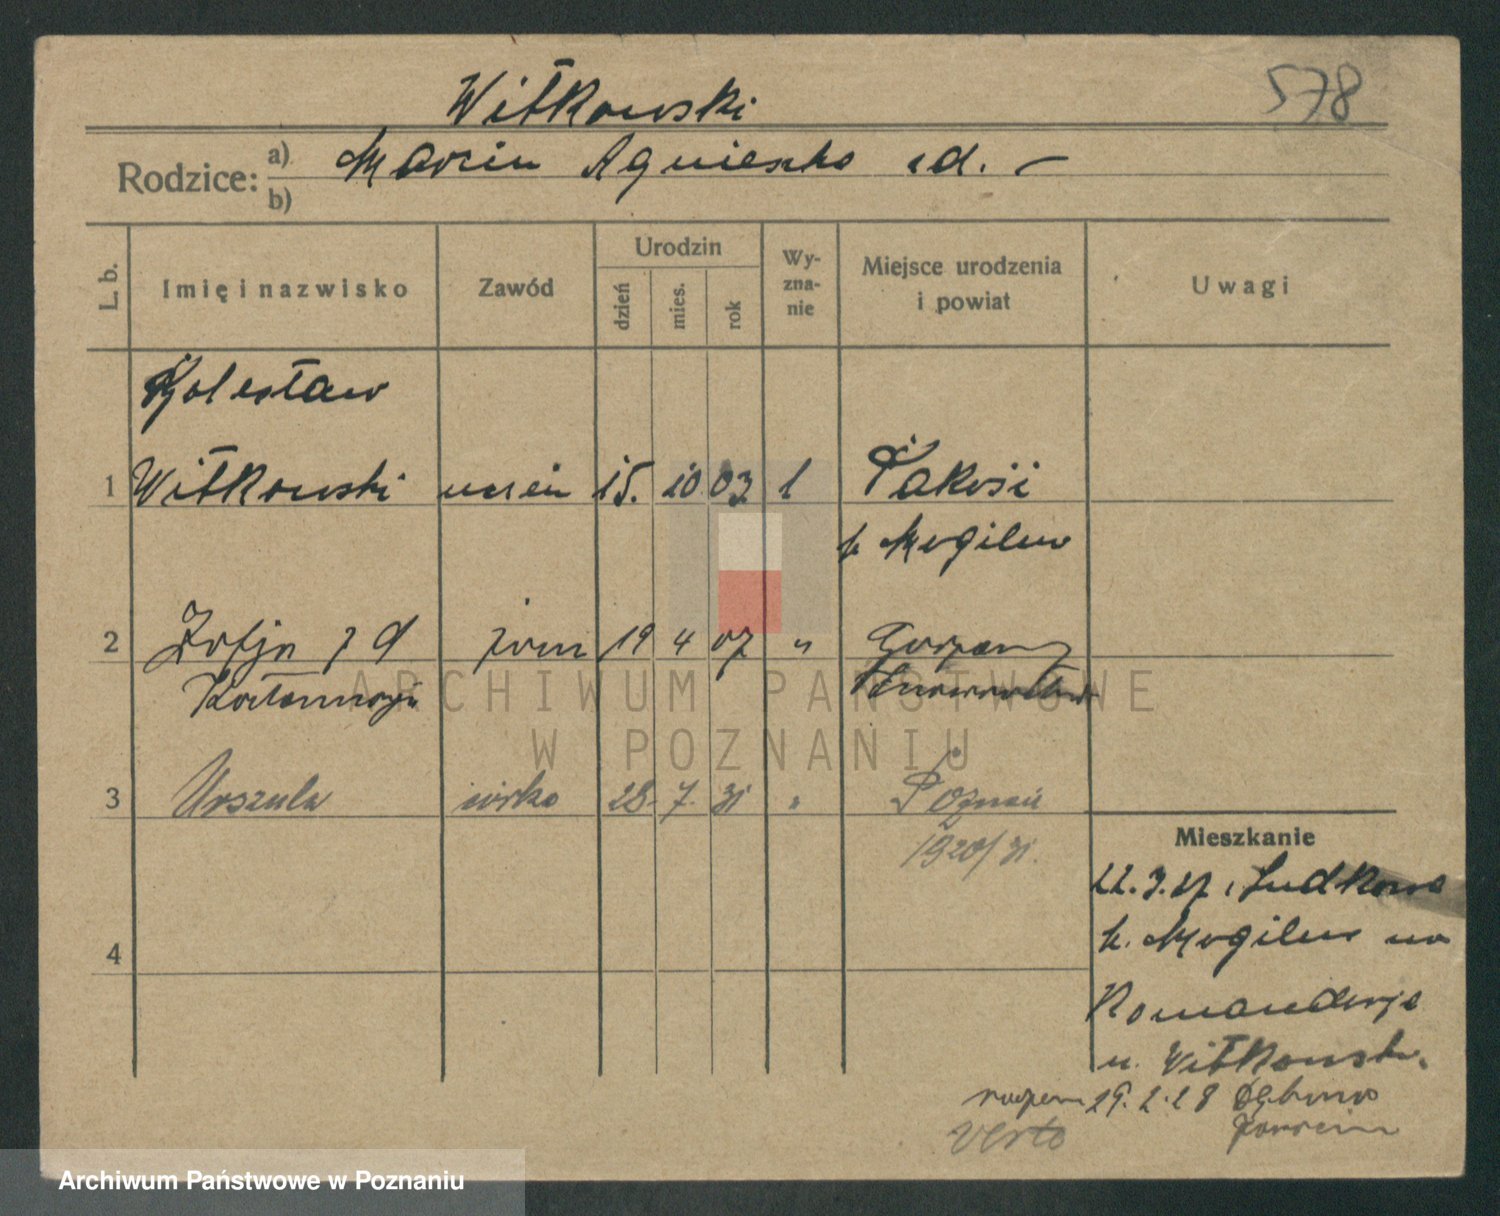 578
Witkowski
Rodzice: a) Marcin Agnieszka zd. —
b)
L. b. Imię i nazwisko Zawód Urodzin dzień mies. rok Wyznanie Miejsce urodzenia i powiat Uwagi
Bolesław
1 Witkowski uczeń 15. 10 03 1 Pakość
p. Mogilno
2 Zofja żona 19 4 07 "
3 Urszula córka 28. 7. 31 " Poznań
1920/31.
4
Mieszkanie
22.3.27
p. Mogilno na
Komanderję
u. Witkowski
29.2.28
verto
ARCHIWUM PAŃSTWOWE
W POZNANIU
Archiwum Państwowe w Poznaniu